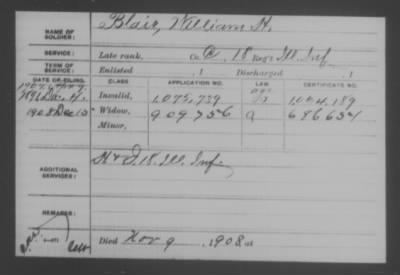 NAME OF SOLDIER: Blair, William H.
SERVICE: Late rank, Co. C, 18 Reg't Ill. Inf.
TERM OF SERVICE: Enlisted , 1 Discharged , 1
DATE OF FILING. CLASS. APPLICATION NO. LAW. CERTIFICATE NO.
Invalid, 1,075,739
1908 Dec 15 Widow, 909,756 9 686654
Minor,
ADDITIONAL SERVICES: H & D. 18. Ill. Inf.
REMARKS:
Died Nov 9 , 1908, at